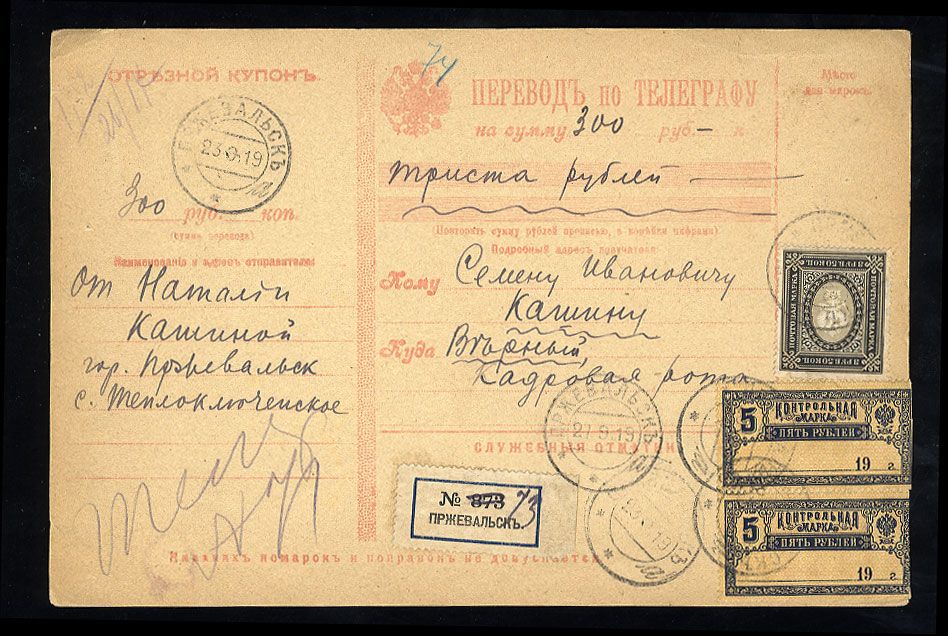 ОТРѢЗНОЙ КУПОНЪ
ПРЖЕВАЛЬСКЪ
23.9.19
а
300 руб. коп.
(сумма перевода)
Наименованіе и адресъ отправителя:
От Наталіи
Кашиной
гор. Пржевальск
с. Теплоключенское
74
ПЕРЕВОДЪ по ТЕЛЕГРАФУ
на сумму 300 руб. — к
Мѣсто
для марокъ.
триста рублей
(Повторить сумму рублей прописью, а копѣйки цифрами)
Подробный адресъ получателя:
Кому Семену Ивановичу
Кашину
Куда Вѣрный,
Кадровая рота
СЛУЖЕБНЫЯ ОТМѢТКИ
ПРЖЕВАЛЬСКЪ
27.9.19
а
№ 873 73
ПРЖЕВАЛЬСКЪ.
Никакихъ помарокъ и поправокъ не допускается
ПОЧТОВАЯ МАРКА
5 КОНТРОЛЬНАЯ
МАРКА
ПЯТЬ РУБЛЕЙ
19 г.
5 КОНТРОЛЬНАЯ
МАРКА
ПЯТЬ РУБЛЕЙ
19 г.